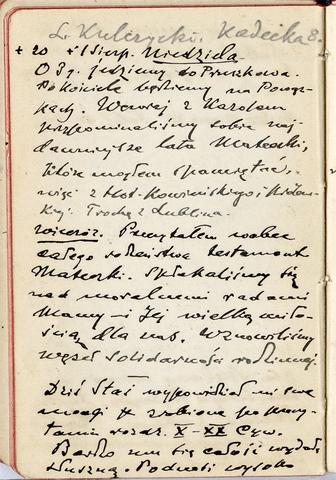 L. Kulczycki. Kadecka 8.
+ 20 + 1 Sierp. Niedziela
O 3 g. jedziemy do Pruszkowa.
Po Kościele byliśmy na Powąz-
kach. Wczoraj z Karolem
przypominaliśmy sobie naj-
dawniejsze lata Mateczki,
które mogłem spamiętać,
więc z Hoł-
kuj. Trochę z Lublina.
Wieczór. Przeczytałem wobec
całego rodzeństwa testament
Mateczki. Spłakaliśmy się
nad moralnemi radami
Mamy — i Jej wielką miło-
ścią dla nas. Wznowiliśmy
węzeł solidarności rodzinnej.
Dziś Staś wypowiedział mi swe
uwagi zrobione po przeczy-
taniu rozdz. X - XX Cyw.
Bardzo mu się całość wydała
słuszną. Podnosi wysoko